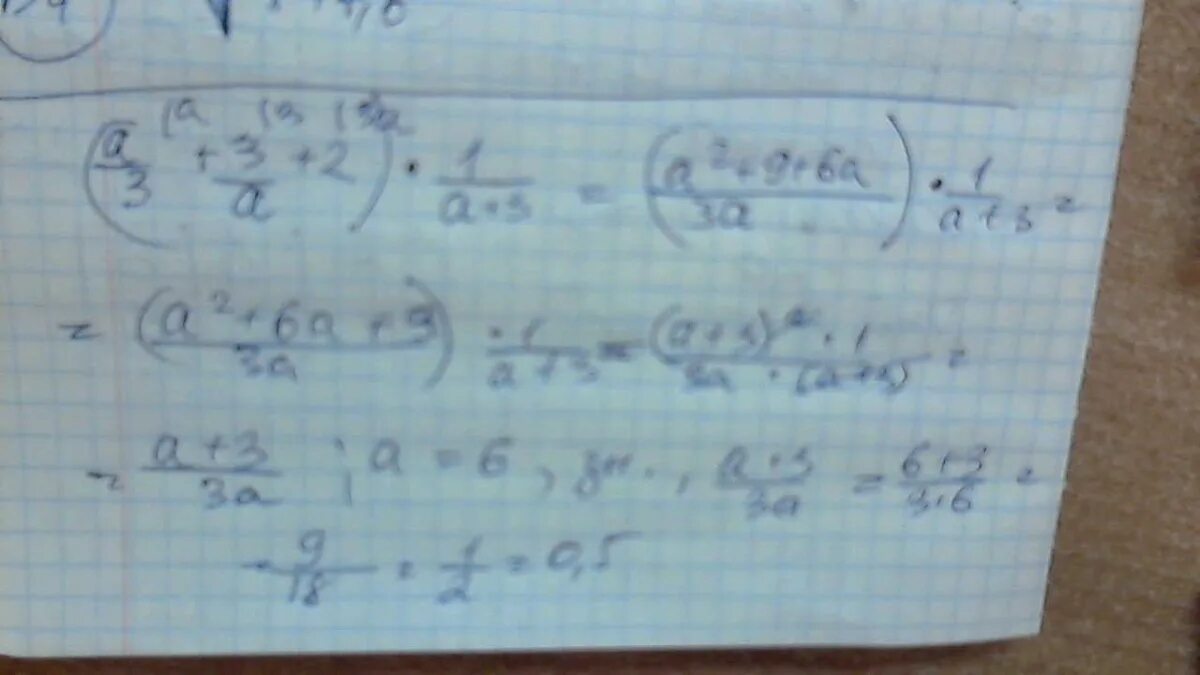 (a/3 + 3/a + 2) · 1/(a+3) = ((a²+9+6a)/3a) · 1/(a+3) =
= ((a²+6a+9)/3a) · 1/(a+3) = ((a+3)² · 1)/(3a · (a+3)) =
= (a+3)/3a ; a = 6, зн., (a+3)/3a = (6+3)/(3·6) =
= 9/18 = 1/2 = 0,5